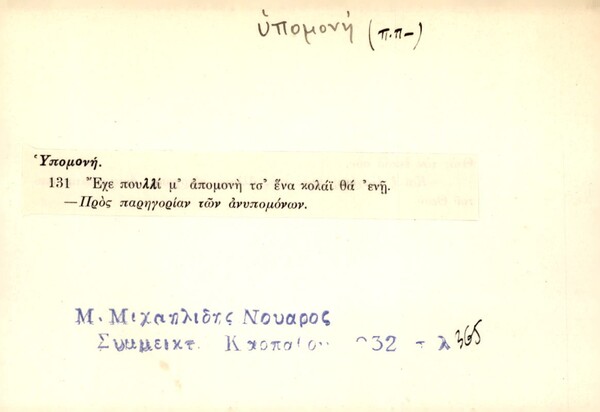 ὑπομονή (π.π–)
Ὑπομονή.
131 Ἔχε πουλλί μ' ἀπομονὴ τσ' ἕνα κολάϊ θά 'ενῇ.
—Πρὸς παρηγορίαν τῶν ἀνυπομόνων.
Μ. Μιχαηλίδης Νουαρος
Συμμεικτ. Καρπαθου 932 365